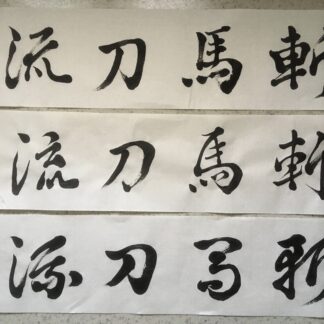 流刀馬斬
流刀馬斬
流刀馬斬